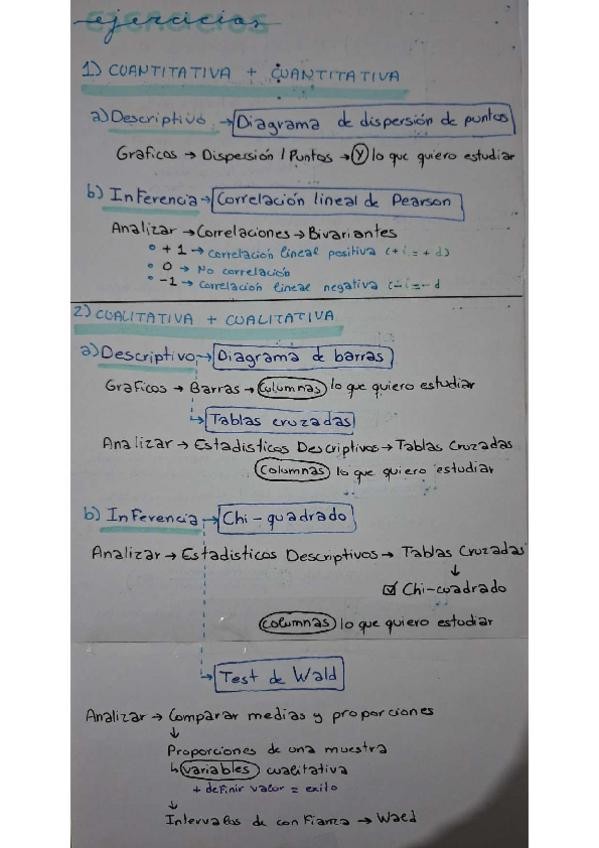 ejercicios
1) CUANTITATIVA + CUANTITATIVA
a) Descriptivo → Diagrama de dispersión de puntos
Graficos → Dispersión / Puntos → Y lo que quiero estudiar
b) Inferencia → Correlación lineal de Pearson
Analizar → Correlaciones → Bivariantes
+1 → correlación lineal positiva (+i = +d)
0 → No correlación
-1 → Correlación lineal negativa (-i = -d
2) CUALITATIVA + CUALITATIVA
a) Descriptivo → Diagrama de barras
Graficos → Barras → columnas lo que quiero estudiar
Tablas cruzadas
Analizar → Estadisticos Descriptivos → Tablas Cruzadas
columnas lo que quiero estudiar
b) Inferencia → Chi-quadrado
Analizar → Estadisticos Descriptivos → Tablas Cruzadas
↓
☑ Chi-cuadrado
columnas lo que quiero estudiar
Test de Wald
Analizar → Comparar medias y proporciones
↓
Proporciones de una muestra
↳ variables cualitativa
+ definir valor = exito
↓
Intervalos de confianza → Waed